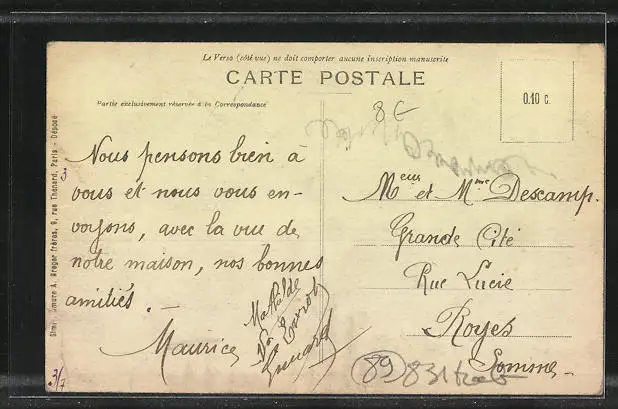 Le Verso (côté vue) ne doit comporter aucune inscription manuscrite
CARTE POSTALE
Partie exclusivement réservée à la Correspondance
0.10 c.
8€
Nous pensons bien à
vous et nous vous en-
voyons, avec la vue de
notre maison, nos bonnes
amitiés. —
Maurice
Mathilde
Meur et Mme Descamp.
Grande Cité
Rue Lucie
Royes
Somme
89
Simi-Bromure A. Breger frères, 9, rue Thénard, Paris - Déposé
3
3/7